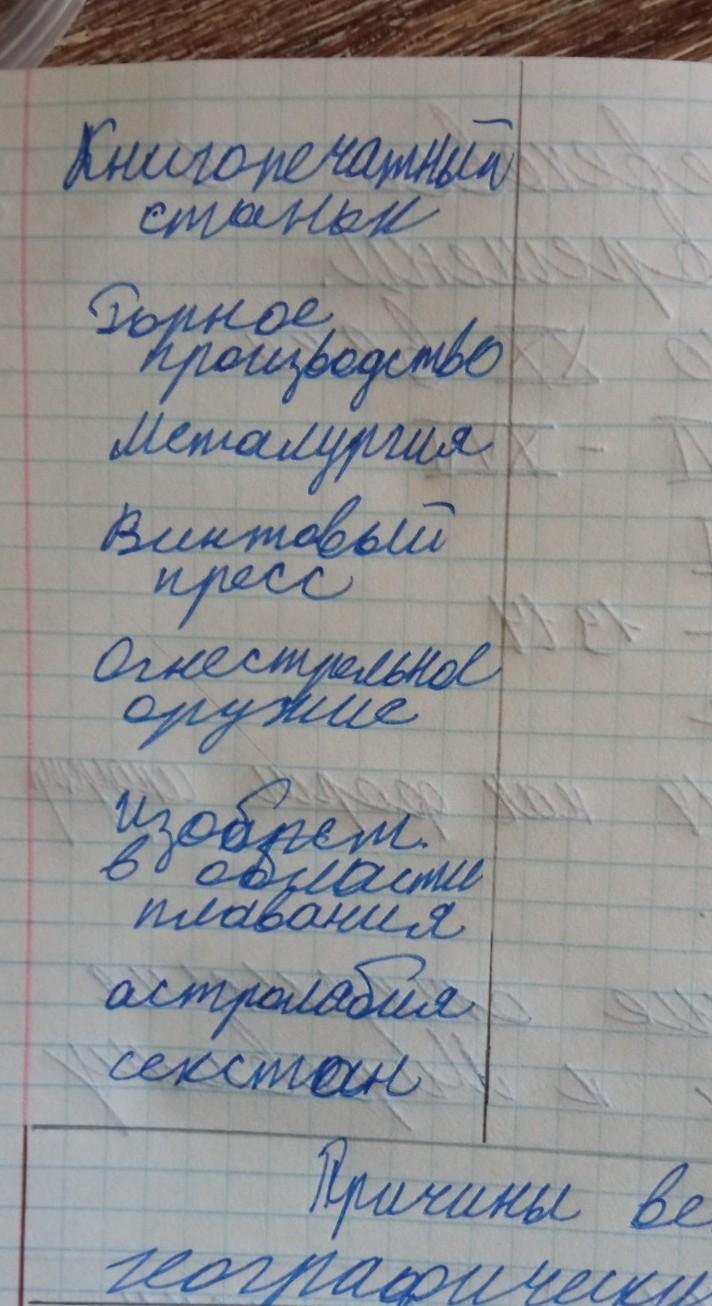 Книгопечатный
станок
Горное
производство
Металургия
Винтовый
пресс
Огнестрельное
оружие
Изобрет.
в области
плавания
астролабия
секстан
Причины ве
географически